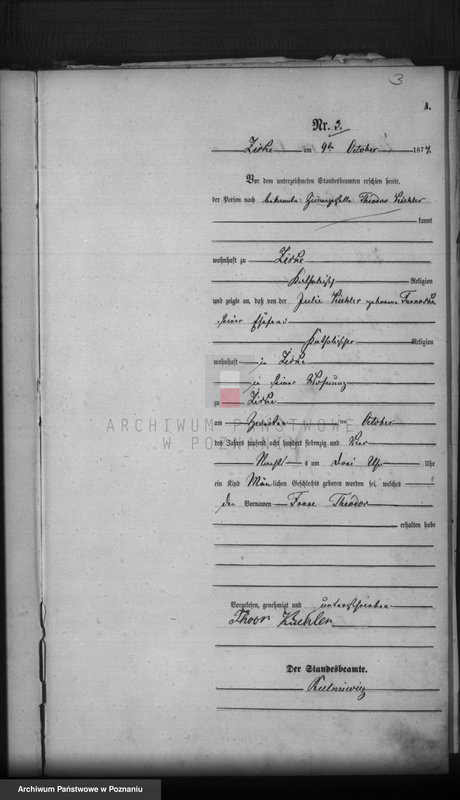 3
A.
Nr. 3.
Zirke am 9ten October 1874.
Vor dem unterzeichneten Standesbeamten erschien heute,
der Person nach bekannte Theodor
kannt
wohnhaft zu Zirke
Katholisch Religion
und zeigte an, daß von der Julie geborene
seiner Ehefrau
Katholischer Religion
wohnhaft in Zirke
in seiner Wohnung
zu Zirke
am Zweiten ten October
des Jahres tausend acht hundert siebenzig und Vier
Nachts um Drei Uhr Uhr
ein Kind Männlichen Geschlechts geboren worden sei, welches
den Vornamen Franz Theodor
erhalten habe
Vorgelesen, genehmigt und unterschrieben
Der Standesbeamte.
ARCHIWUM PAŃSTWOWE
W POZNANIU
Archiwum Państwowe w Poznaniu